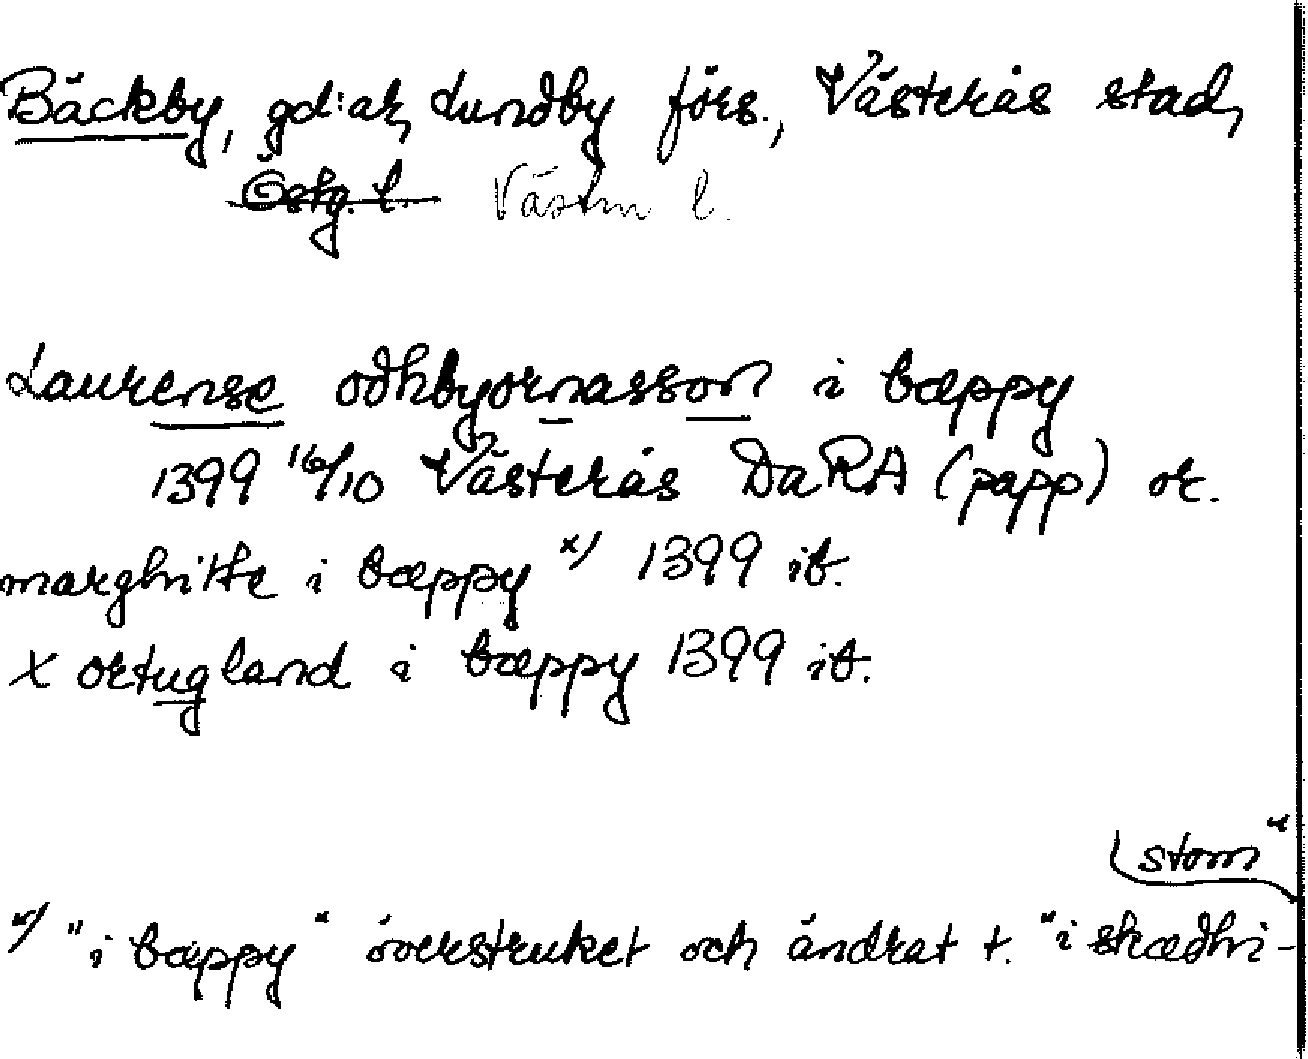 Bäckby, gd:ar, Lundby förs., Västerås stad,
Östg. l. Västm l.
Laurense odhbyornasson i bæppy
1399 16/10 Västerås DaRA (papp) or.
marghitte i bæppy x) 1399 ib.
X ortugland i bæppy 1399 ib.
x) "i bæppy" överstruket och ändrat t. "i skædhvi-
stom"